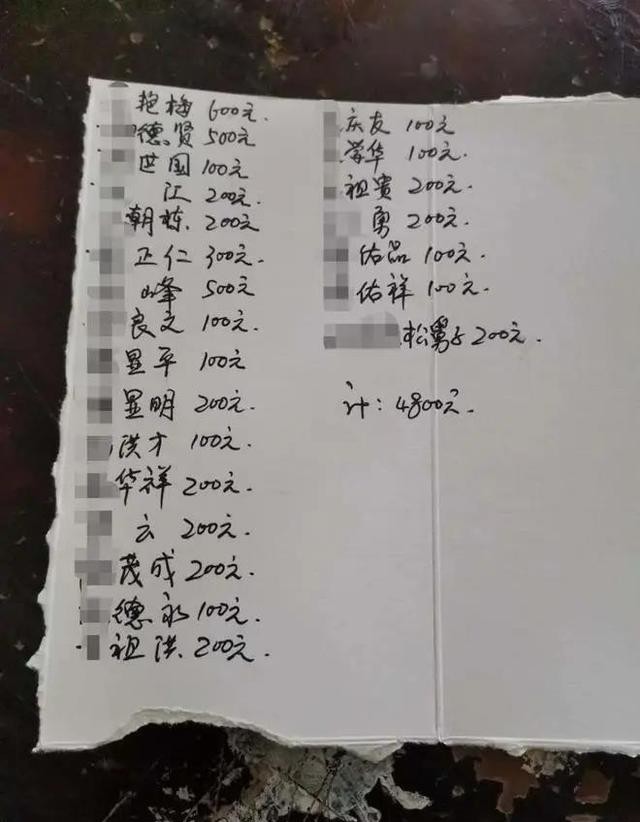 艳梅 600元.
德贤 500元
世国 100元
江 200元.
朝栋. 200元
正仁 300元.
峰 500元
良文 100元.
显平 100元
显明 200元.
洪才 100元.
华祥 200元.
云 200元.
茂成 200元.
德永 100元.
祖洪 200元.
庆友 100元
荣华 100元.
祖贵 200元.
勇 200元.
佑品 100元.
佑祥 100元.
松舅 200元.
计: 4800元.